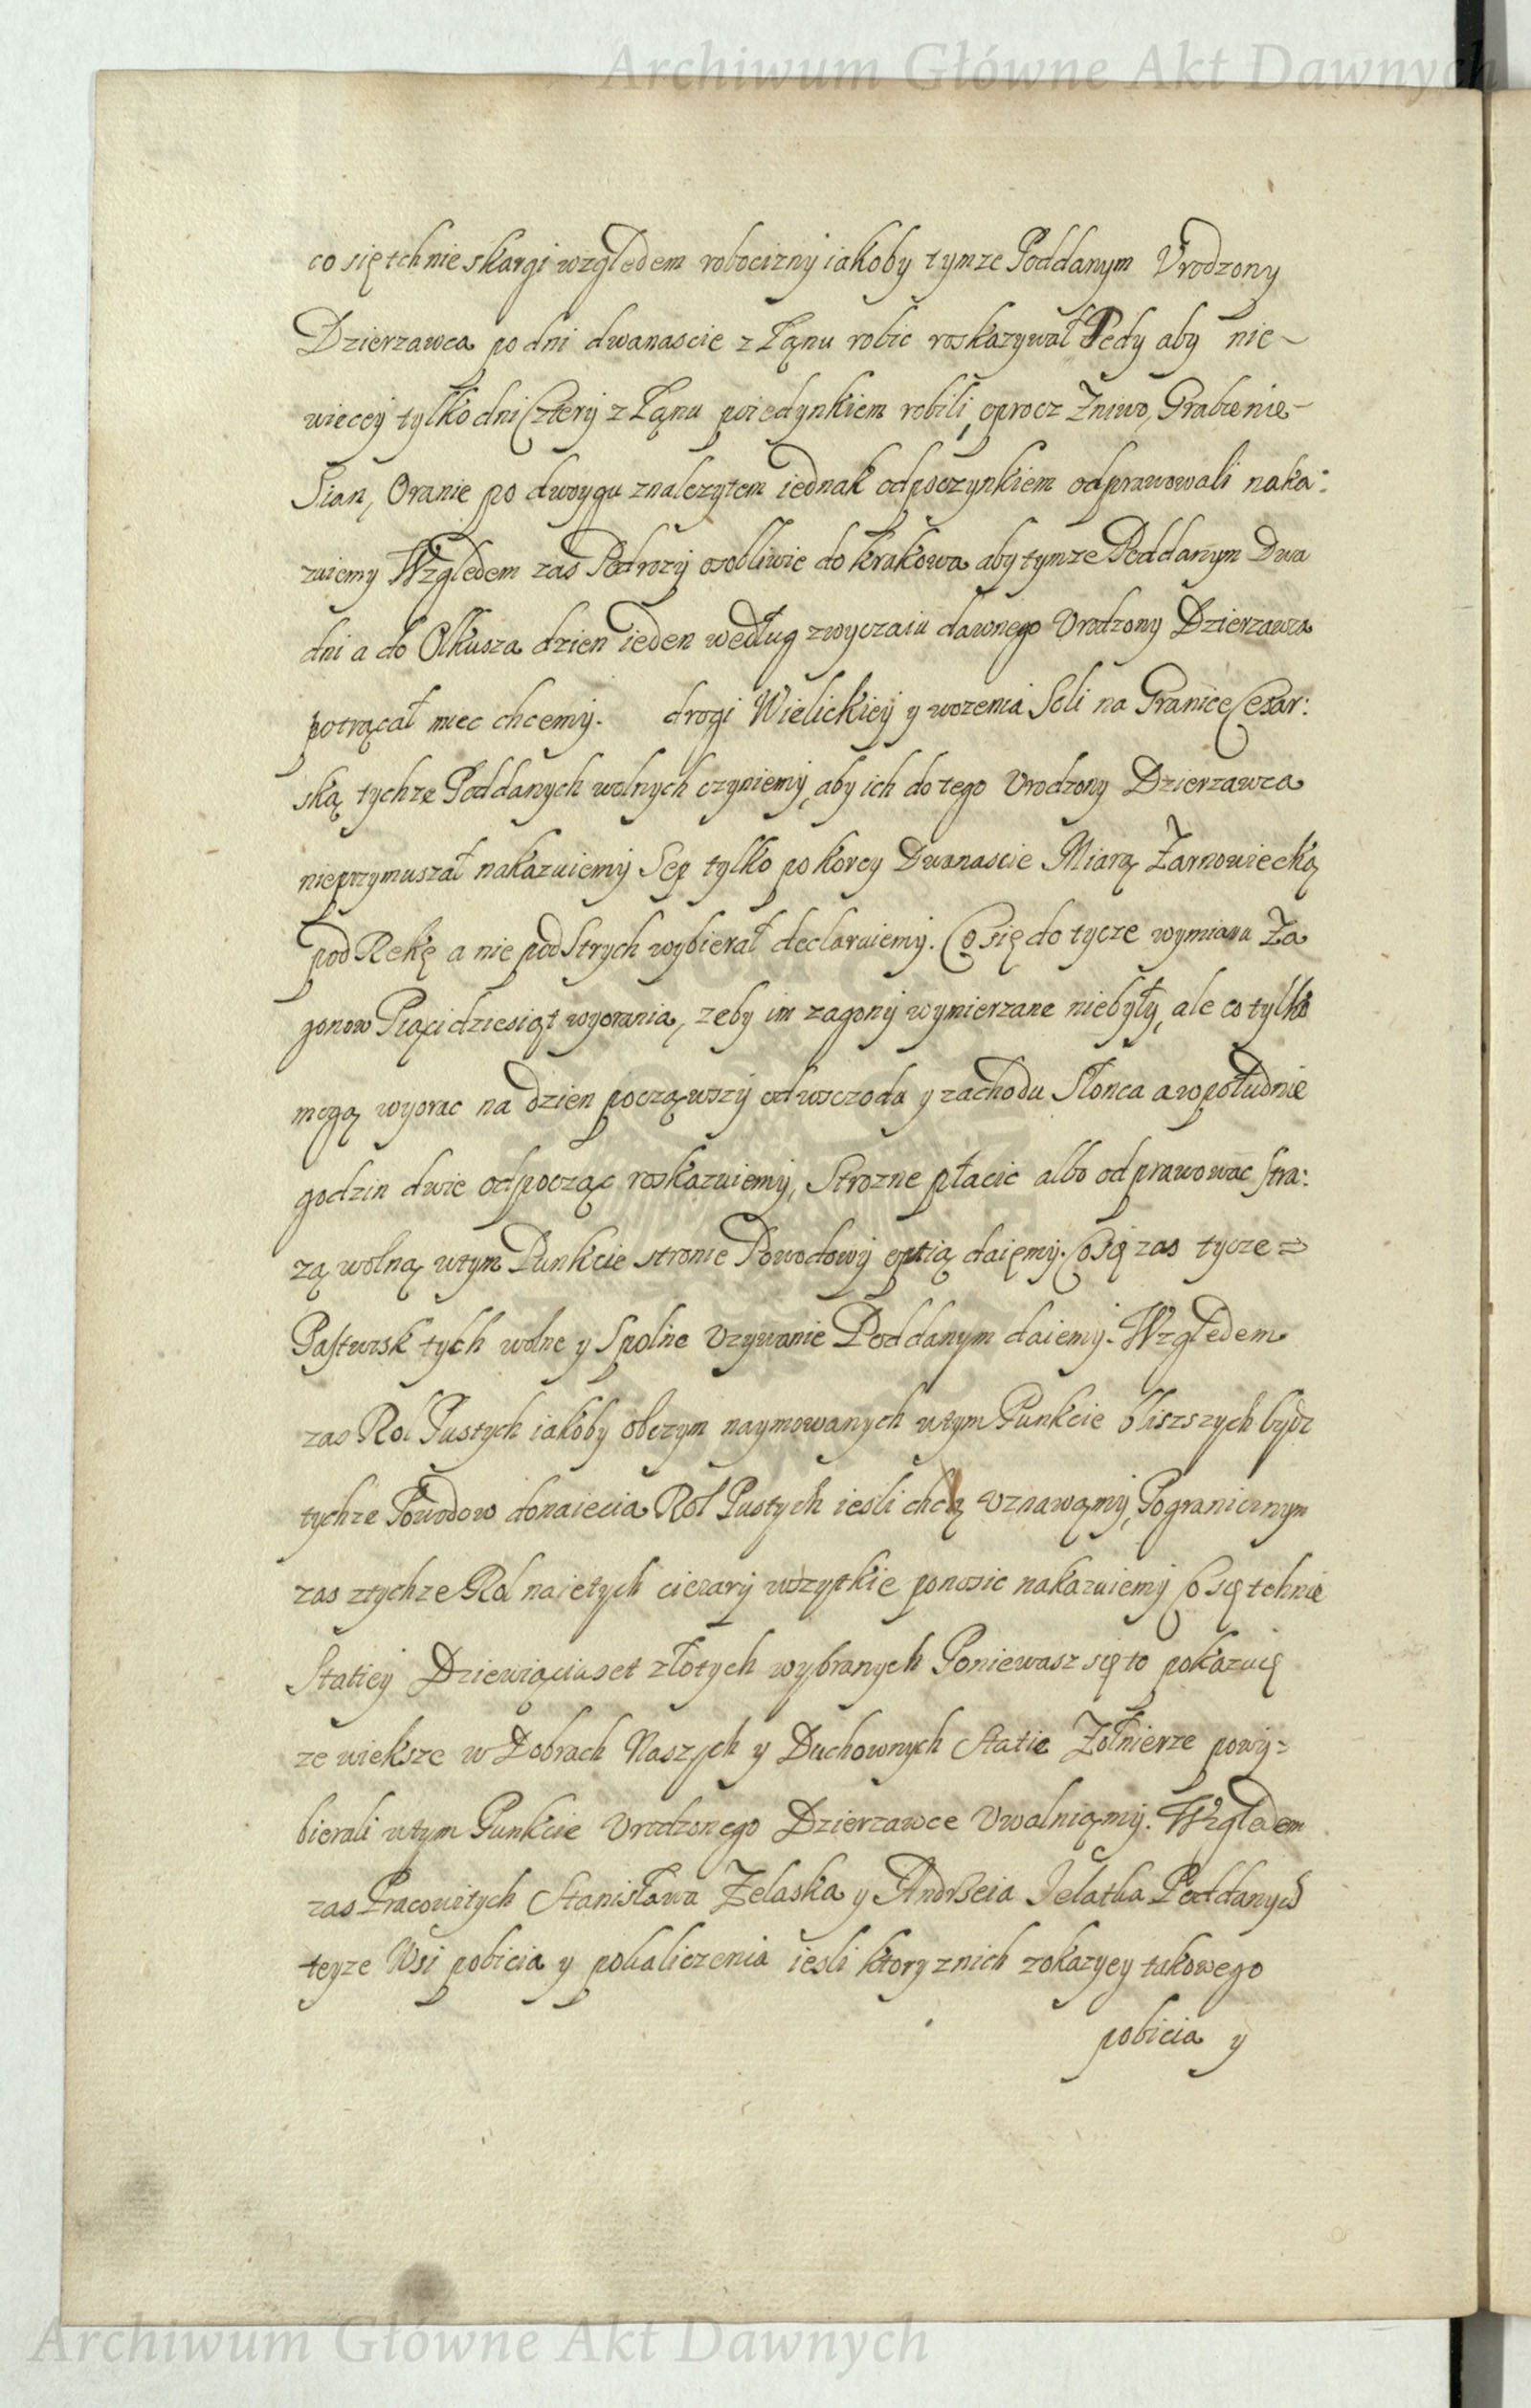 Archiwum Główne Akt Dawnych
co się tchnie skargi względem robocizny iakoby tymze Poddanym Vrodzony
Dzierzawca po dni dwanascie z Łąnu robic roskazywał Tedy aby nie~
wiecey tylko dni Cztery z Łąnu poiedynkiem robili, oprocz Zniwo, Grabienie-
Sian, Oranie po dwoygu znalezytem iednak odpoczynkiem odprawowali naka:
zuiemy Względem zas Podrozy osobliwie do krakowa aby tymze Poddanym Dwa
dni a do Olkusza dzien ieden według zwyczaiu dawnego Vrodzony Dzierzawca
potrącał miec chcemy. drogi Wielickiey y wozenia Soli na Granice Cesar:
ską tychze Poddanych wolnych czyniemy, aby ich do tego Vrodzony Dzierzawca
nieprzymuszał nakazuiemy Sep tylko po korcy Dwanascie Miarą Żarnowiecką
pod Rekę a nie pod Strych wybierał declaruiemy. Co się do tycze wymiaru Za
gonow Piąci dziesiąt wyorania, zeby im zagony wymierzane niebyły, ale co tylko
mogą wyorac na dzien począwszy od wschodu y zachodu Słonca a w południe
godzin dwie odpocząc roskazuiemy, Strozne płacic albo odprawowac Stra:
zą wolną wtym Punkcie stronie Powodowy optią daięmy. Co się zas tycze =
Pastwisk tych wolne y Spolne Vzywanie Poddanym daiemy. Względem
zas Rol Pustych iakoby obczym naymowanych wtym Punkcie bliszszych bydz
tychze Powodow donaiecia Rol Pustych iesli chcą Vznawamy, Pogranicznym
zas ztychze Rol naietych ciezary wszytkie ponosic nakazuiemy Co się tchnie
Statiey Dziewiąciuset złotych wybranych Poniewasz się to pokazuię
ze wieksze w Dobrach Naszych y Duchownych Statie Żołnierze powy=
bierali wtym Punkcie Vrodzonego Dzierzawce Vwalniamy. Względem
zas Pracowitych Stanisława Zelaska y Andrzeia Jelatka Poddanych
teyze Wsi pobicia y pokaliczenia iesli ktory znich zokazyey takowego
pobicia y
Archiwum Główne Akt Dawnych